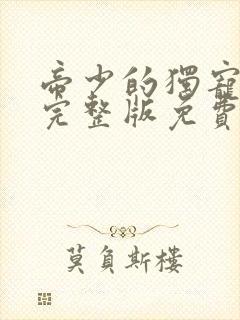 帝少的獨寵
完整版免費
莫負斯樓